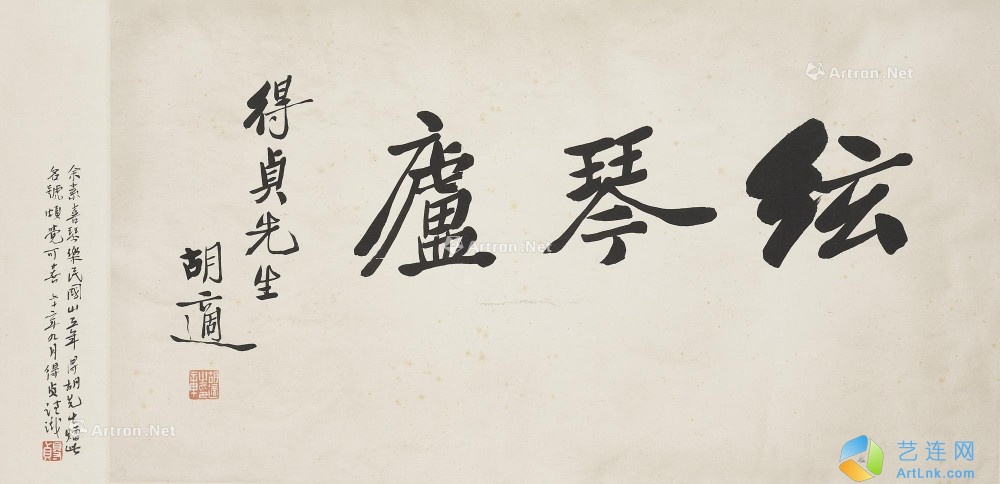 Artron.Net
絃琴廬
得貞先生
胡適
余素喜琴樂民國五年胡先生贈此
名號頗覺可喜 年九月得貞謹識
Artron.Net
Artron.Net
Artron.Net
艺连网
ArtLnk.com